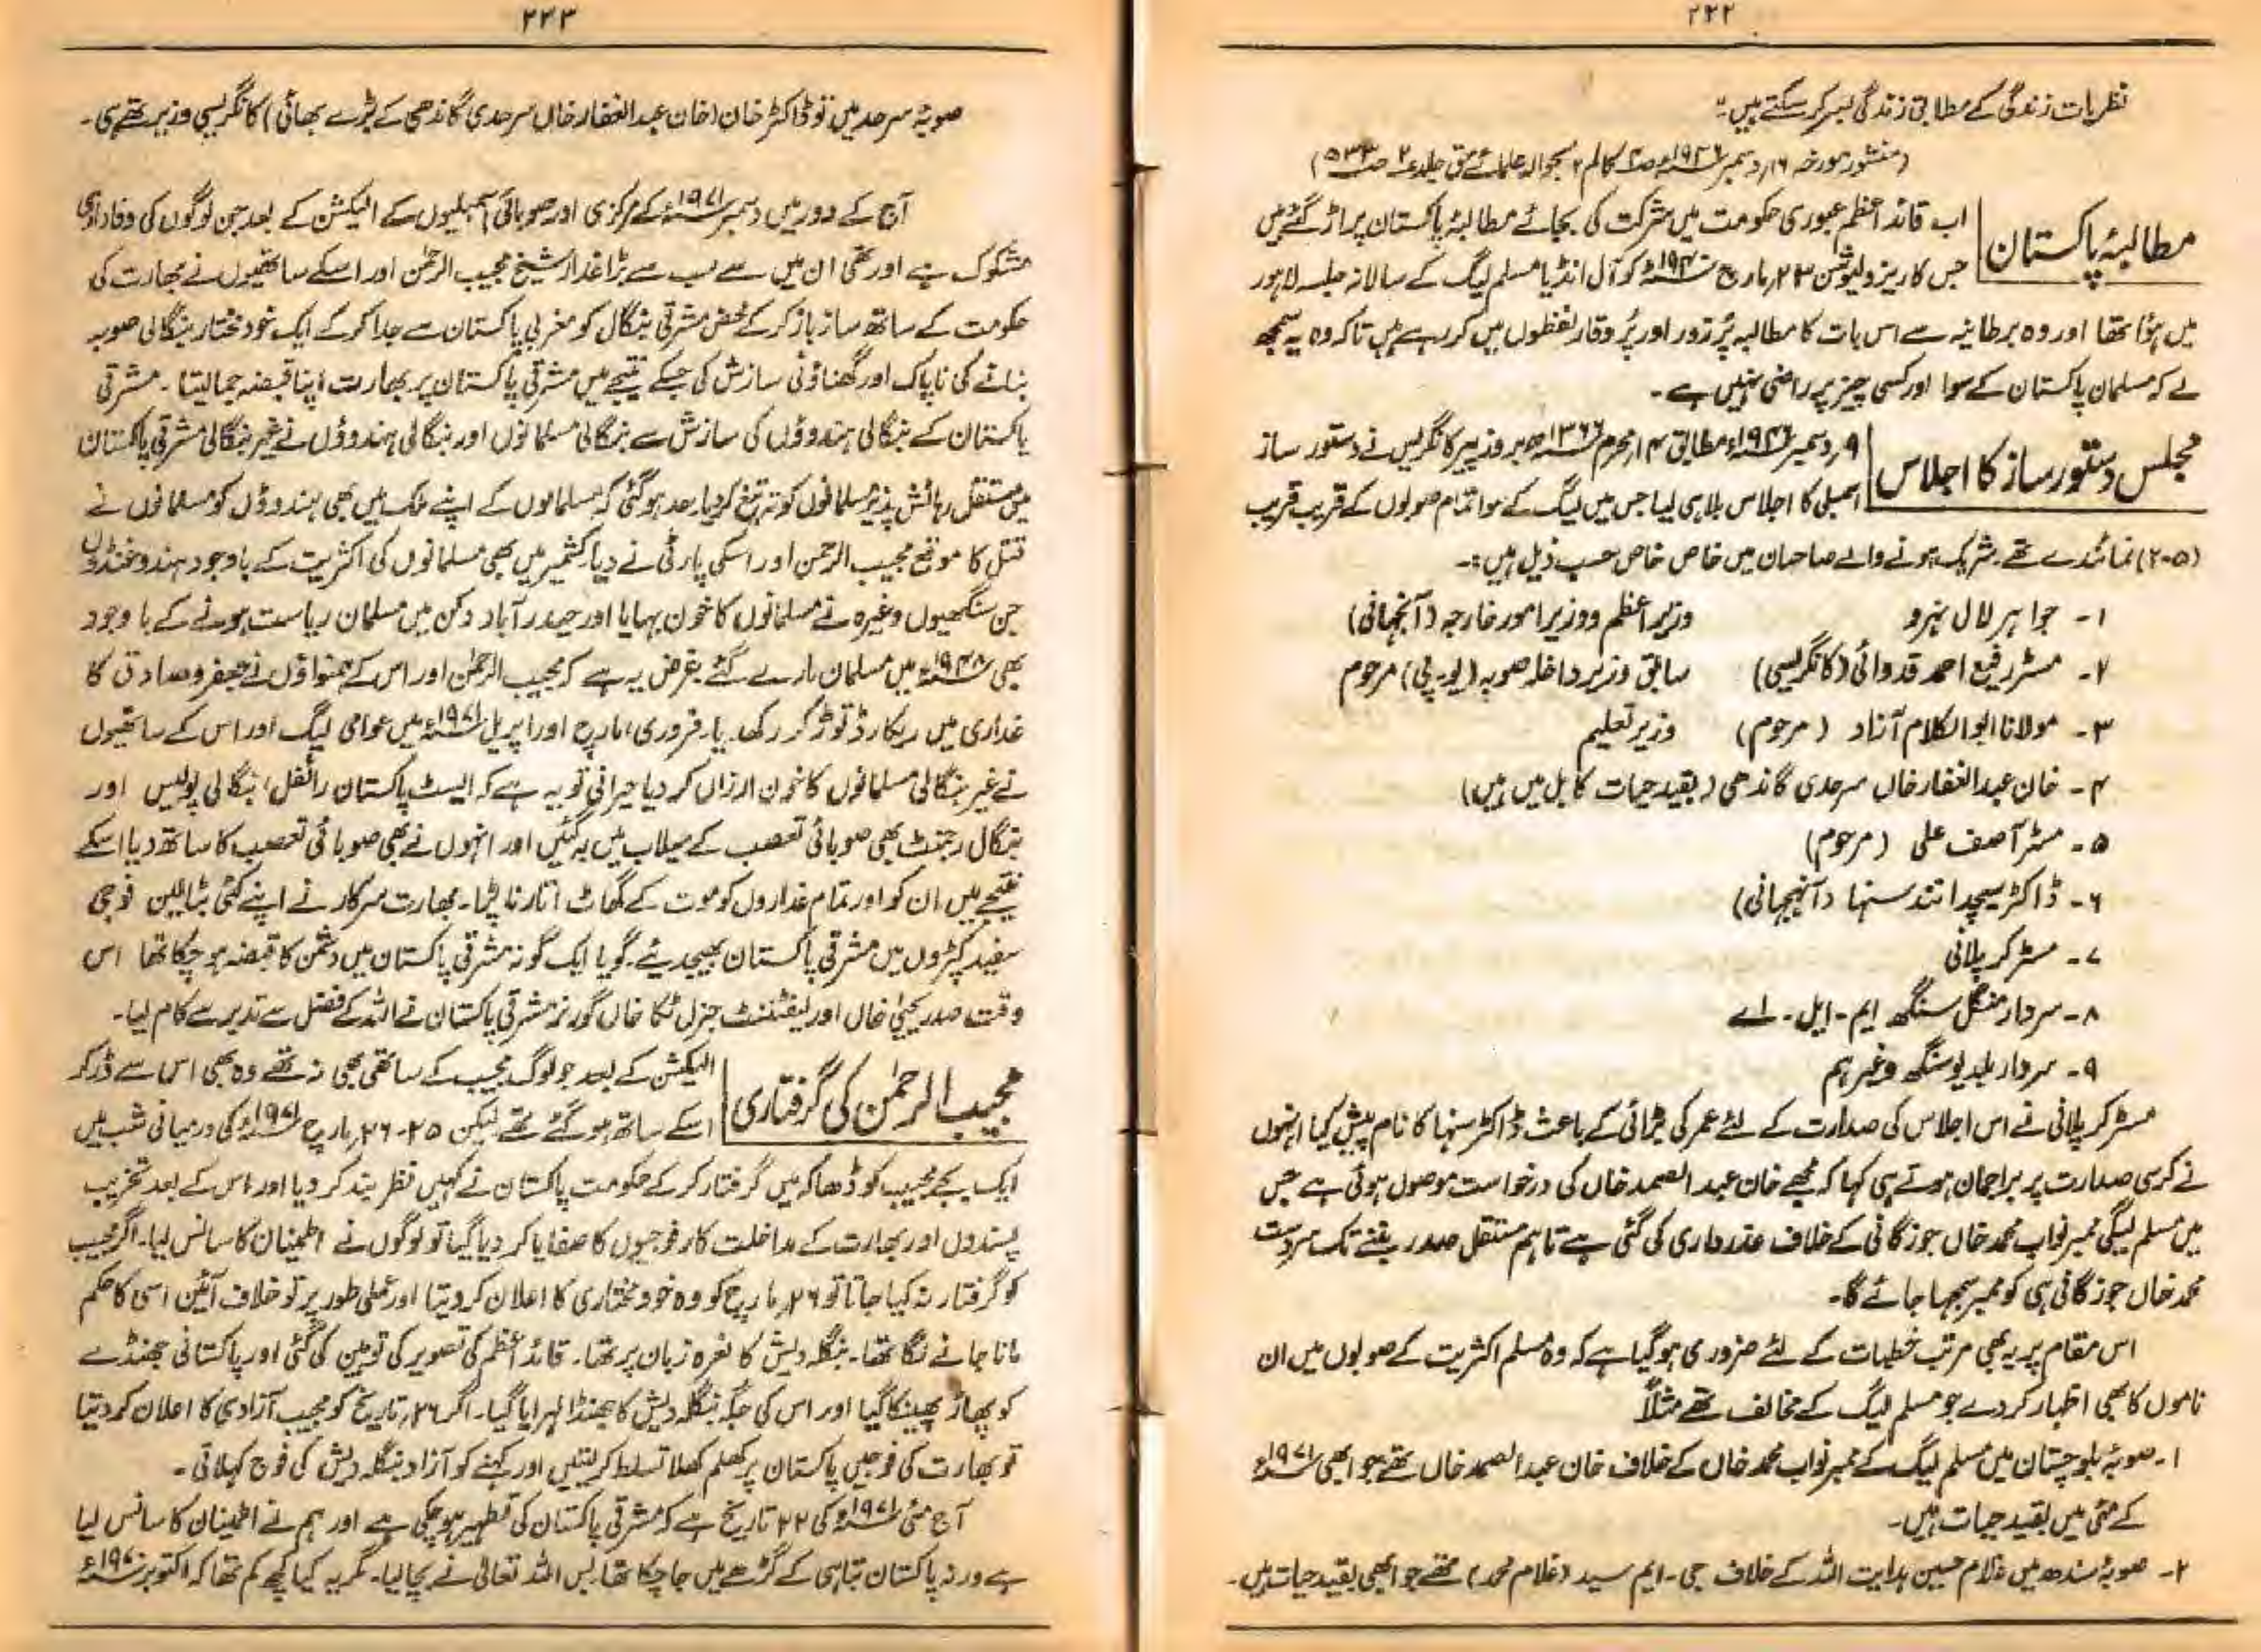 ۲۲۲
نظریات زندگی کے مطابق زندگی بسر کر سکتے ہیں۔"
(منشور مورخہ ۱۶ر دسمبر ۱۹۴۶ء ص۳ کالم ۲ بحوالہ علمائے حق جلد ۲ ص ۵۳۳)
مطالبۂ پاکستان
اب قائد اعظم عبوری حکومت میں شرکت کی بجائے مطالبۂ پاکستان پر اڑ گئے ہیں
جس کا ریزولیوشن ۲۳ر مارچ ۱۹۴۰ء کو آل انڈیا مسلم لیگ کے سالانہ جلسہ لاہور
میں ہؤا تھا اور وہ برطانیہ سے اس بات کا مطالبہ پُر زور اور پُر وقار لفظوں میں کر رہے ہیں تاکہ وہ یہ سمجھ
لے کہ مسلمان پاکستان کے سوا اور کسی چیز پر راضی نہیں ہے۔
مجلس دستور ساز کا اجلاس
۹ر دسمبر ۱۹۴۶ء مطابق ۱۴ر محرم ۱۳۶۶ھ بروز پیر کانگریس نے دستور ساز
اسمبلی کا اجلاس بلا ہی لیا جس میں لیگ کے سوا تمام صوبوں کے قریب قریب
(۲۰۵) نمائندے تھے۔ شریک ہونے والے صاحبان میں خاص خاص حسب ذیل ہیں:۔
۱۔ جواہر لال نہرو وزیر اعظم و وزیر امور خارجہ (آنجہانی)
۲۔ مسٹر رفیع احمد قدوائی (کانگریسی) سابق وزیر داخلہ صوبہ (یو۔پی) مرحوم
۳۔ مولانا ابوالکلام آزاد (مرحوم) وزیر تعلیم
۴۔ خان عبدالغفار خاں سرحدی گاندھی (بقید حیات کابل میں ہیں)
۵۔ مسٹر آصف علی (مرحوم)
۶۔ ڈاکٹر سچدا نند سنہا (آنجہانی)
۷۔ مسٹر کرپلانی
۸۔ سردار منگل سنگھ ایم۔ایل۔اے
۹۔ سردار بلدیو سنگھ وغیرہم
مسٹر کرپلانی نے اس اجلاس کی صدارت کے لئے عمر کی بڑائی کے باعث ڈاکٹر سنہا کا نام پیش کیا انہوں
نے کرسی صدارت پر براجمان ہوتے ہی کہا کہ مجھے خان عبد الصمد خاں کی درخواست موصول ہوئی ہے جس
میں مسلم لیگی ممبر نواب محمد خاں جوزگائی کے خلاف عذر داری کی گئی ہے تاہم مستقل صدر بننے تک سردست
محمد خاں جوزگائی ہی کو ممبر سمجھا جائے گا۔
اس مقام پر یہ بھی مرتب خطبات کے لئے ضروری ہو گیا ہے کہ وہ مسلم اکثریت کے صوبوں میں ان
ناموں کا بھی اظہار کر دے جو مسلم لیگ کے مخالف تھے مثلاً
۱۔ صوبۂ بلوچستان میں مسلم لیگ کے ممبر نواب محمد خاں کے خلاف خان عبدالصمد خاں تھے جو ابھی ۱۹۷۱ء
کے مئی میں بقید حیات ہیں۔
۲۔ صوبۂ سندھ میں غلام حسین ہدایت اللہ کے خلاف جی۔ایم سید (غلام محمد) تھے جو ابھی بقید حیات ہیں۔
۲۲۳
صوبۂ سرحد میں تو ڈاکٹر خان (خان عبد الغفار خاں سرحدی گاندھی کے بڑے بھائی) کانگریسی وزیر تھے ہی۔
آج کے دور میں دسمبر ۱۹۷۱ء کے مرکزی اور صوبائی اسمبلیوں کے الیکشن کے بعد جن لوگوں کی وفاداری
مشکوک ہے اور تھی ان میں سے سب سے بڑا غدار شیخ مجیب الرحمٰن اور اسکے ساتھیوں نے بھارت کی
حکومت کے ساتھ ساز باز کر کے محض مشرقی بنگال کو مغربی پاکستان سے جدا کر کے ایک خود مختار بنگالی صوبہ
بنانے کی ناپاک اور گھناؤنی سازش کی جسکے نتیجے میں مشرقی پاکستان پر بھارت اپنا قبضہ جما لیتا۔ مشرقی
پاکستان کے بنگالی ہندوؤں کی سازش سے بنگالی مسلمانوں اور بنگالی ہندوؤں نے غیر بنگالی مشرقی پاکستان
میں مستقل رہائش پذیر مسلمانوں کو تہ تیغ کر دیا۔ حد ہو گئی کہ مسلمانوں کے اپنے ملک میں بھی ہندوؤں کو مسلمانوں نے
قتل کا موقع مجیب الرحمن اور اسکی پارٹی نے دیا۔ کشمیر میں بھی مسلمانوں کی اکثریت کے باوجود ہندو غنڈوں
جن سنگھیوں وغیرہ نے مسلمانوں کا خون بہایا اور حیدر آباد دکن میں مسلمان ریاست ہونے کے باوجود
بھی ۱۹۴۸ء میں مسلمان مارے گئے۔ غرض یہ ہے کہ مجیب الرحمٰن اور اس کے ہمنواؤں نے جعفر و صادق کا
غداری میں ریکارڈ توڑ کر رکھ دیا۔ فروری، مارچ اور اپریل ۱۹۷۱ء میں عوامی لیگ اور اس کے ساتھیوں
نے غیر بنگالی مسلمانوں کا خون ارزاں کر دیا حیرانی تو یہ ہے کہ ایسٹ پاکستان رائفل، بنگالی پولیس اور
بنگال رجمنٹ بھی صوبائی تعصب کے سیلاب میں بہ گئیں اور انہوں نے بھی صوبائی تعصب کا ساتھ دیا اسکے
نتیجے میں ان کو اور تمام غداروں کو موت کے گھاٹ اتارنا پڑا۔ بھارت سرکار نے اپنے کئی بٹالین فوجی
سفید کپڑوں میں مشرقی پاکستان بھیجدیئے۔ گویا ایک گونہ مشرقی پاکستان میں دشمن کا قبضہ ہو چکا تھا اس
وقت صدر یحییٰ خاں اور لیفٹننٹ جنرل ٹکا خاں گورنر مشرقی پاکستان نے اللہ کے فضل سے تدبر سے کام لیا۔
مجیب الرحمٰن کی گرفتاری
الیکشن کے بعد جو لوگ مجیب کے ساتھی بھی نہ تھے وہ بھی اس سے ڈر کر
اسکے ساتھ ہو گئے تھے لیکن ۲۵-۲۶ر مارچ ۱۹۷۱ء کی درمیانی شب میں
ایک بجے مجیب کو ڈھاکہ میں گرفتار کر کے حکومت پاکستان نے کہیں نظر بند کر دیا اور اس کے بعد تخریب
پسندوں اور بھارت کے مداخلت کار فوجیوں کا صفایا کر دیا گیا تو لوگوں نے اطمینان کا سانس لیا۔ اگر مجیب
کو گرفتار نہ کیا جاتا تو ۲۶ر مارچ کو وہ خود مختاری کا اعلان کر دیتا اور عملی طور پر تو خلاف آئین اسی کا حکم
مانا جانے لگا تھا۔ بنگلہ دیش کا نعرہ زبان پر تھا۔ قائد اعظم کی تصویر کی توہین کی گئی اور پاکستانی جھنڈے
کو پھاڑ پھینکا گیا اور اس کی جگہ بنگلہ دیش کا جھنڈا لہرایا گیا۔ اگر ۲۶ر تاریخ کو مجیب آزادی کا اعلان کر دیتا
تو بھارت کی فوجیں پاکستان پر کھلم کھلا تسلط کر لیتیں اور کہنے کو آزاد بنگلہ دیش کی فوج کہلاتی۔
آج مئی ۱۹۷۱ء کی ۲۲ تاریخ ہے کہ مشرقی پاکستان کی تطہیر ہو چکی ہے اور ہم نے اطمینان کا سانس لیا
ہے ورنہ پاکستان تباہی کے گڑھے میں جا چکا تھا۔ بس اللہ تعالیٰ نے بچا لیا۔ مگر یہ کیا کچھ کم تھا کہ اکتوبر ۱۹۷۰ء